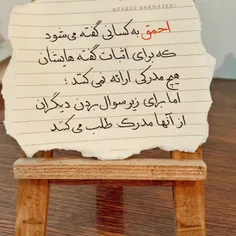 احمق به کسانی گفته می‌شود
که برای اثبات گفته هایشان
هیچ مدرکی ارائه نمی کنند ؛
اما برای زیر سوال بردن دیگران
از آنها مدرک طلب می کنند